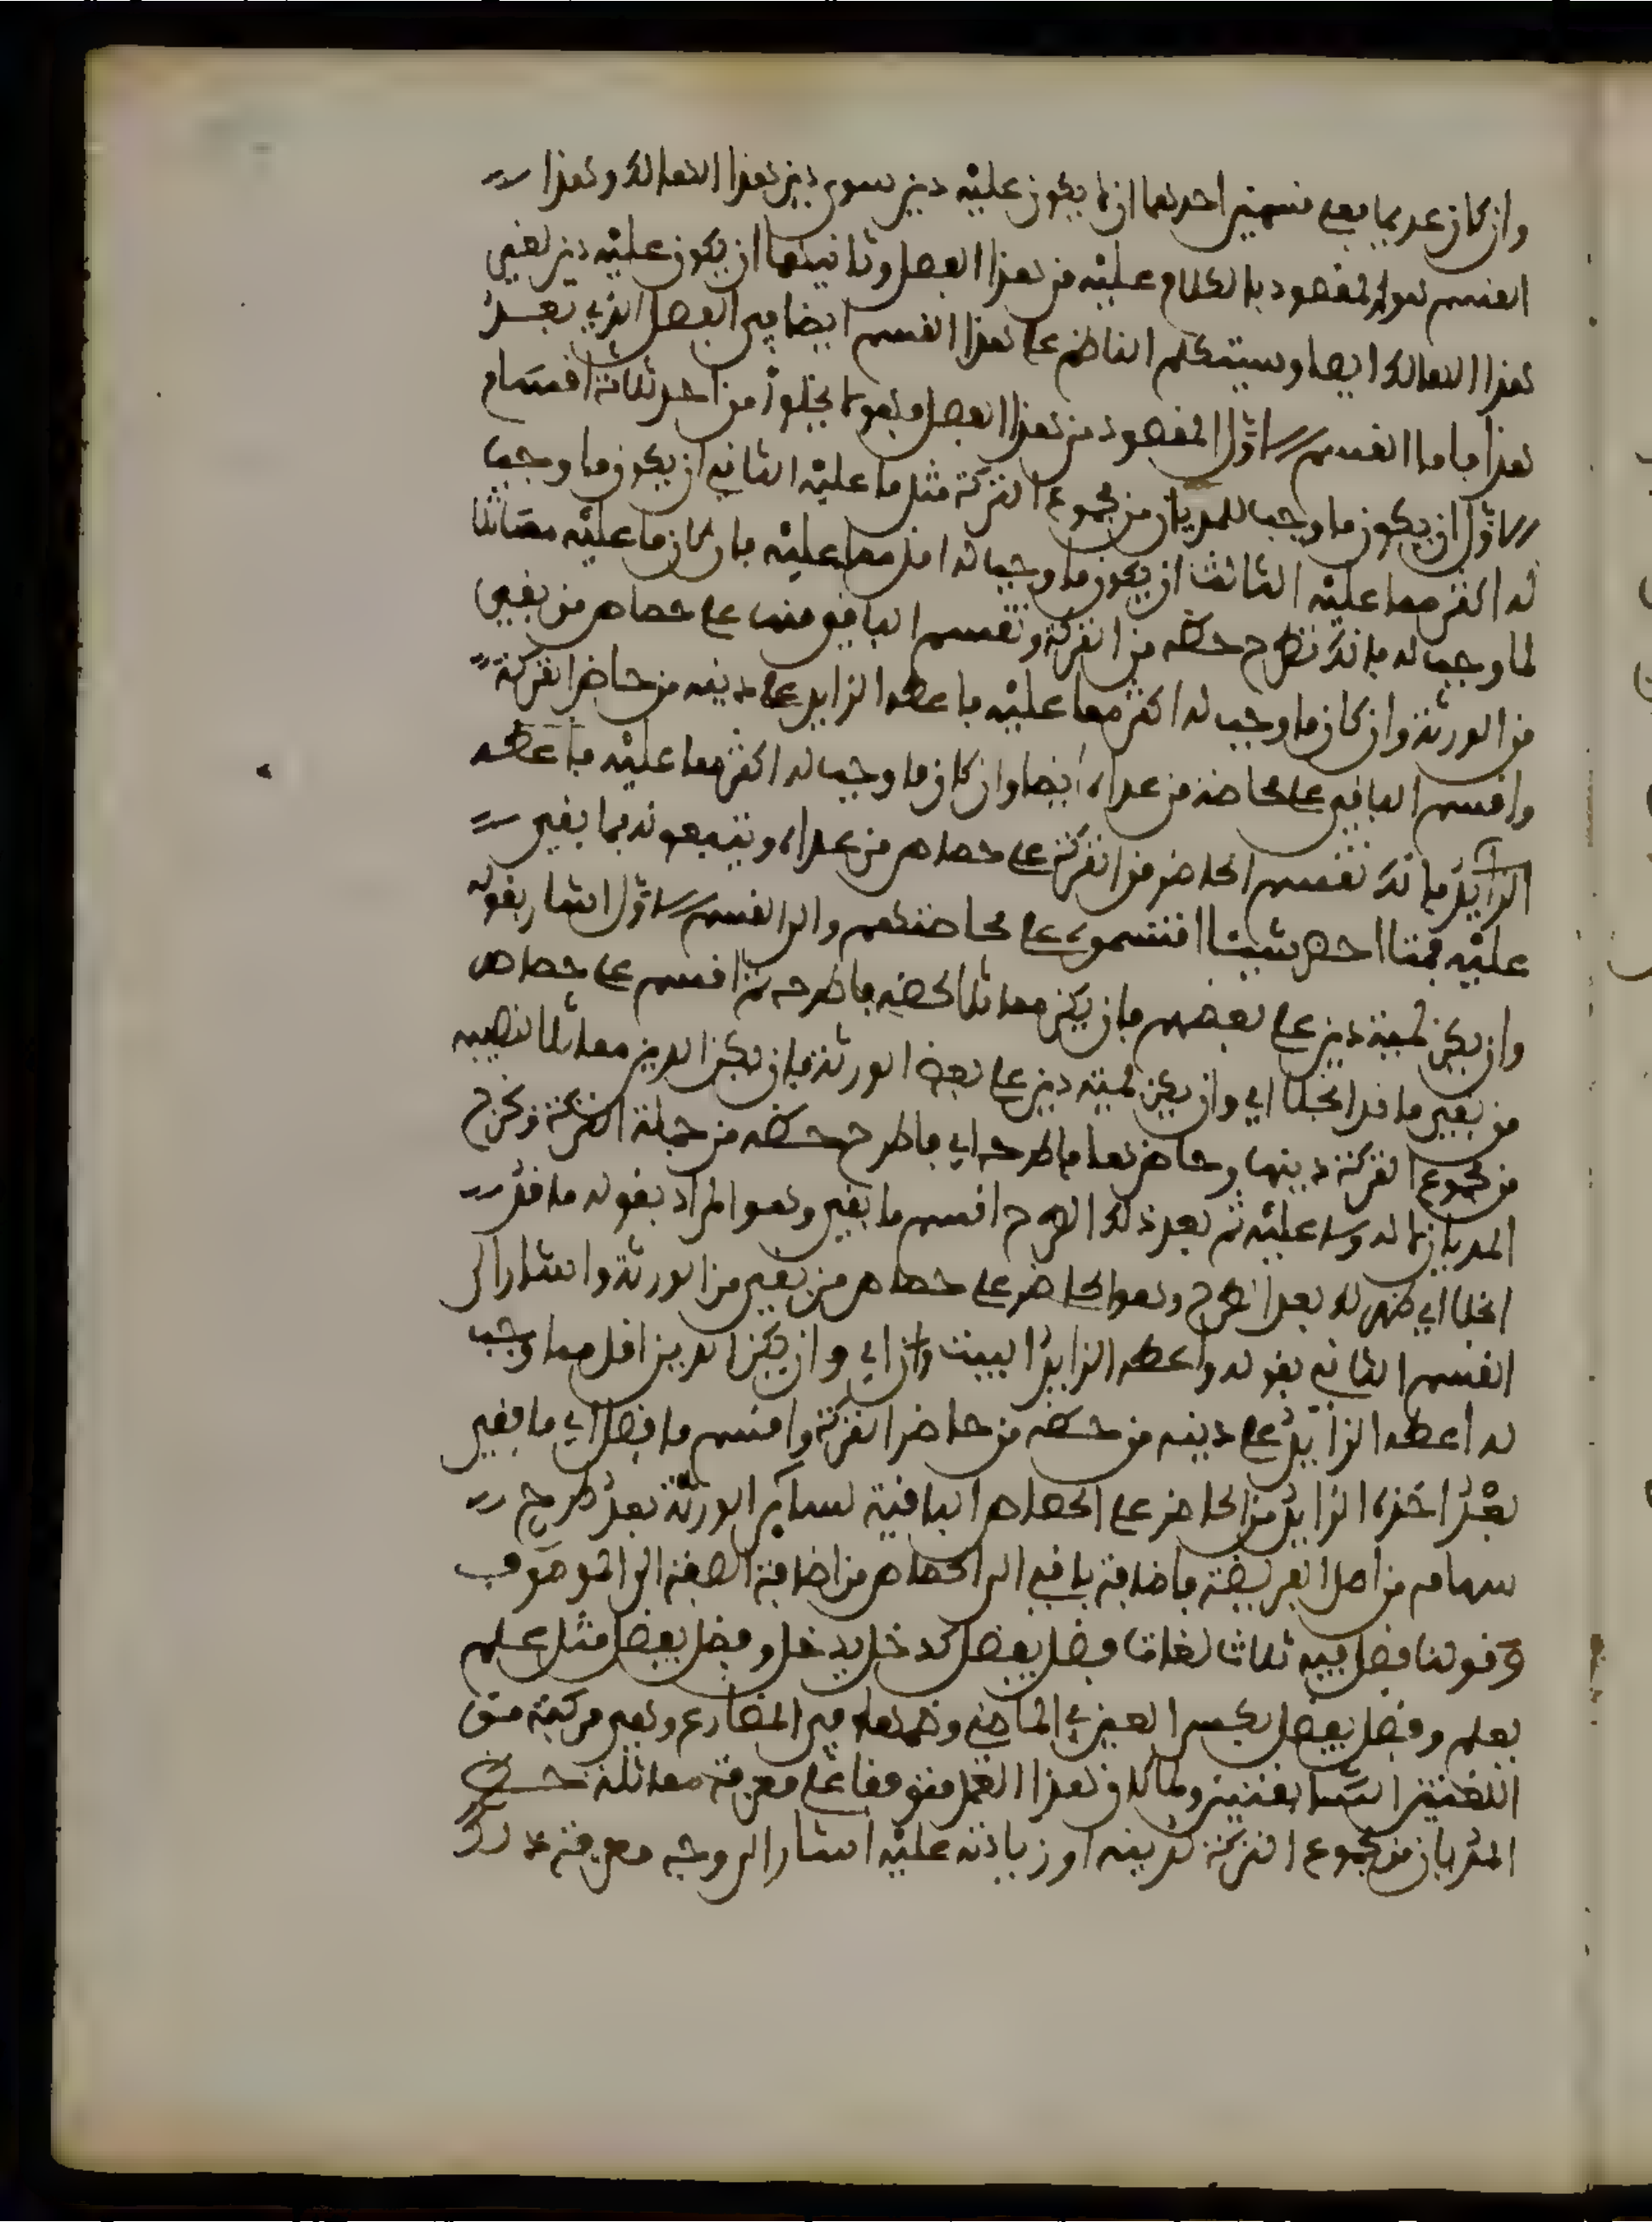 وان كان عديما فعلى قسمين احدهما ان لا يكون عليه دين سوى دين هذا الهالك وهذا
القسم هو المقصود بالكلام عليه من هذا الفصل وثانيهما ان يكون عليه دين لغير
هذا الهالك ايضا وسيتكلم الناظم على هذا القسم ايضا في الفصل الذي بعد
هذا فاما القسم الاول المقصود من هذا الفصل فهو لا يخلو من احد ثلاثة اقسام
الاول ان يكون ما وجب للمديان من مجموع التركة مثل ما عليه الثاني ان يكون ما وجب
له اكثر مما عليه الثالث ان يكون ما وجب له اقل مما عليه فان كان ما عليه مماثلا
لما وجب له فانك تطرح حظه من التركة وتقسم الباقي منها على حصاص من بقي
من الورثة وان كان ما وجب له اكثر مما عليه فاعطه الزايد على دينه من حاضر التركة
واقسم الباقي على محاصة من عداه ايضا وان كان ما وجب له اكثر مما عليه فاعطه
الزايد فانك تقسم الحاضر من التركة على حصاص من عداه ويتبعونه بما بقي
عليه فمتا احضر شيئا اقتسموه على محاصتهم والى القسم الاول اشار بقوله
وان يكن لميت دين على بعضهم فان يكن مماثلا لحظه فاطرحه ثم اقسم على حصاص
من بقي ما قد انجلا اي وان يكن لميت دين على بعض الورثة فان يكن الدين مماثلا نصيبه
من مجموع التركة دينها وحاضرها فاطرحه اي فاطرح حظه من جملة التركة وتخرج
المديان لا له ولا عليه ثم بعد ذلك الطرح اقسم ما بقي وهو المراد بقوله ما قد
انجلا اي ظهر لك بعد الطرح وهو الحاضر على حصاص من بقي من الورثة واشار الى
القسم الثاني بقوله واعطه الزايد البيت وان اي وان يكن الدين اقل مما وجب
له اعطه الزايد على دينه من حظه من حاضر التركة واقسم ما فضل اي ما بقي
بعد اخذه الزايد من الحاضر على الحصاص الباقية لساير الورثة بعد طرح
سهامه من اصل الفريضة فاضافة باقي الى الحصاص من اضافة الصفة الى الموصوف
وقولنا فضل فيه ثلاث لغات فضل يفضل كدخل يدخل وفضل يفضل مثل علم
يعلم وفضل يفضل بكسر العين في الماضي وضمها في المضارع وهي مركبة من
اللغتين السابقتين ولما كان هذا العمل متوقفا على معرفة مماثلة حظ
المديان من مجموع التركة لدينه او زيادته عليه اشار الى وجه معرفة ذلك